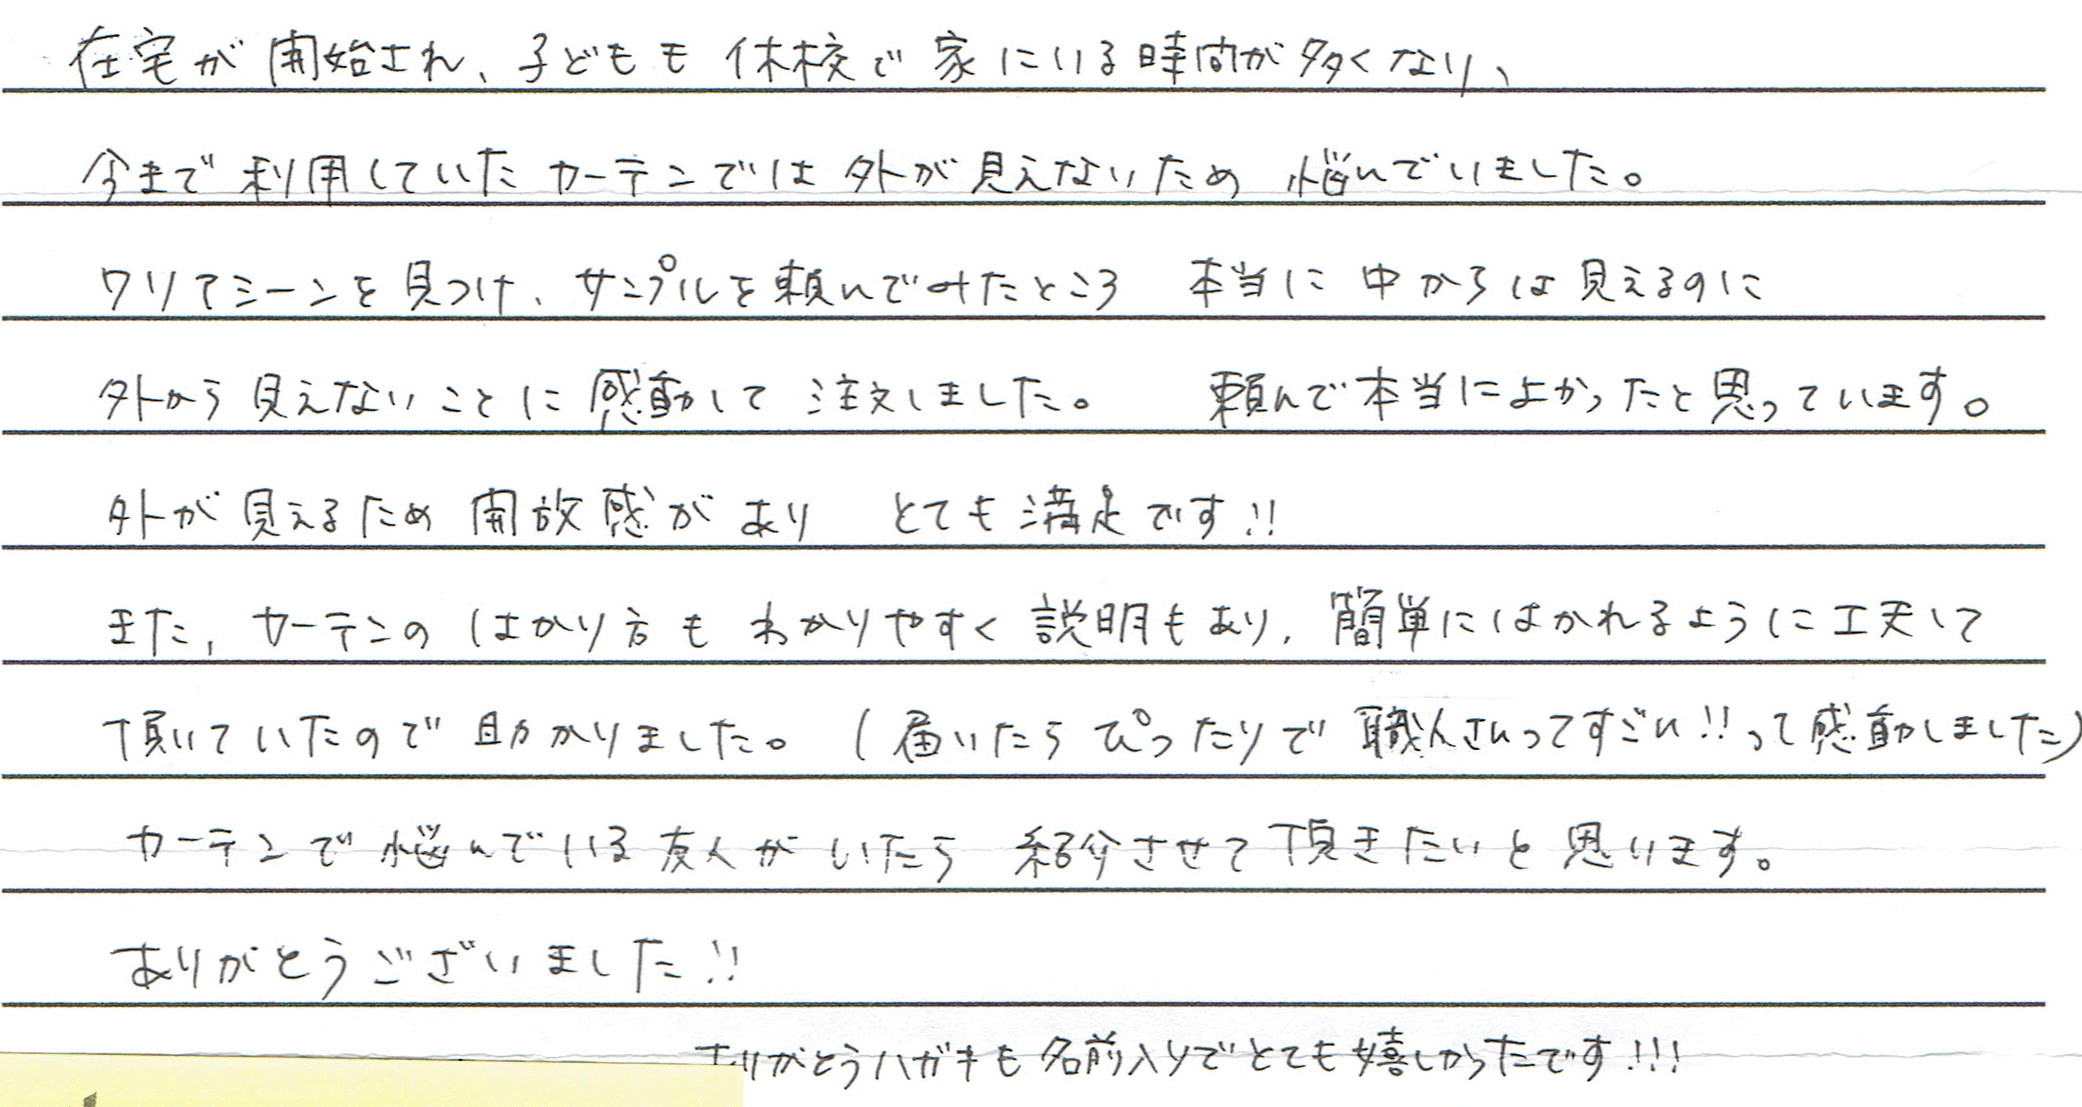 在宅が開始され、子どもも休校で家にいる時間が多くなり、
今まで利用していたカーテンでは外が見えないため 悩んでいました。
クリアミーンを見つけ、サンプルを頼んでみたところ 本当に中からは見えるのに
外から見えないことに感動して注文しました。 頼んで本当によかったと思っています。
外が見えるため開放感があり とても満足です!!
また、カーテンのはかり方もわかりやすく説明もあり、簡単にはかれるように工夫して
頂いていたので助かりました。(届いたらぴったりで職人さんってすごい!!って感動しました)
カーテンで悩んでいる友人がいたら 紹介させて頂きたいと思います。
ありがとうございました!!
ありがとうハガキも名前入りでとても嬉しかったです!!!